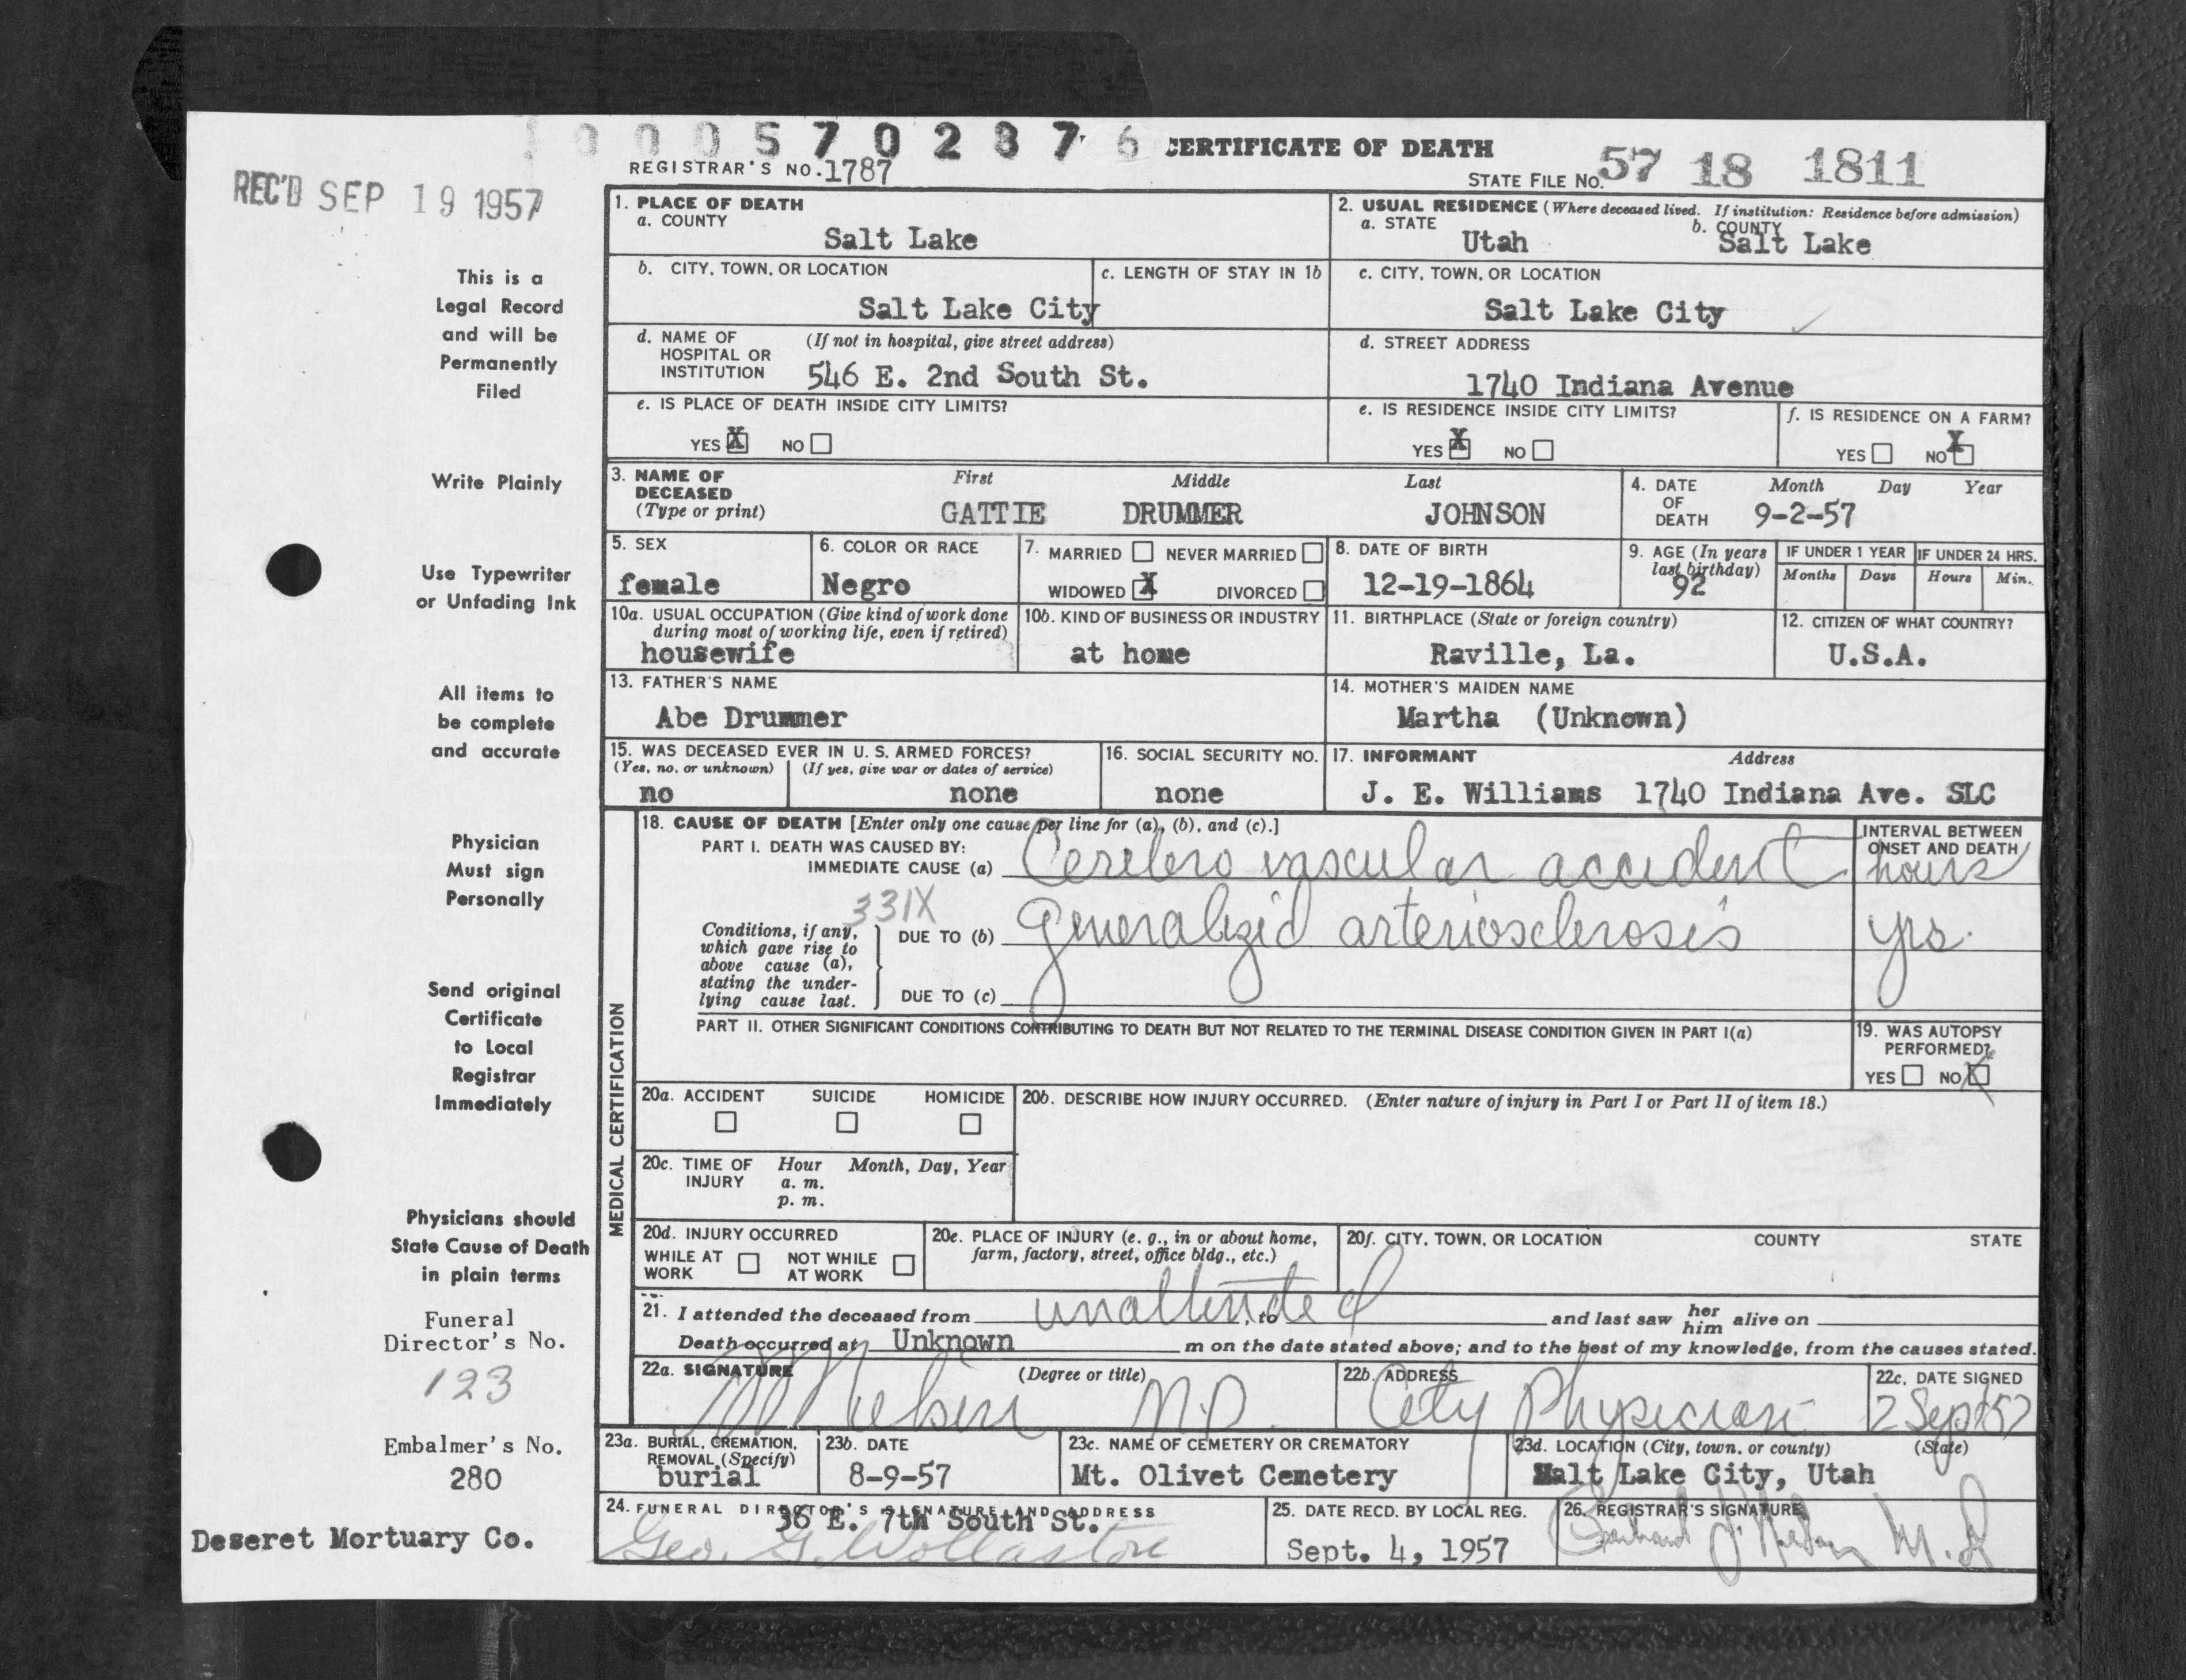 1000570287 6 CERTIFICATE OF DEATH
REGISTRAR'S NO. 1787
STATE FILE NO. 57 18 1811
REC'D SEP 19 1957
This is a
Legal Record
and will be
Permanently
Filed
Write Plainly
Use Typewriter
or Unfading Ink
All items to
be complete
and accurate
Physician
Must sign
Personally
Send original
Certificate
to Local
Registrar
Immediately
Physicians should
State Cause of Death
in plain terms
Funeral
Director's No.
123
Embalmer's No.
280
Deseret Mortuary Co.
1. PLACE OF DEATH
a. COUNTY
Salt Lake
2. USUAL RESIDENCE (Where deceased lived. If institution: Residence before admission)
a. STATE Utah b. COUNTY Salt Lake
b. CITY, TOWN, OR LOCATION
Salt Lake City
c. LENGTH OF STAY IN 1b
c. CITY, TOWN, OR LOCATION
Salt Lake City
d. NAME OF (If not in hospital, give street address)
HOSPITAL OR
INSTITUTION 546 E. 2nd South St.
d. STREET ADDRESS
1740 Indiana Avenue
e. IS PLACE OF DEATH INSIDE CITY LIMITS?
YES X NO
e. IS RESIDENCE INSIDE CITY LIMITS?
YES X NO
f. IS RESIDENCE ON A FARM?
YES NO X
3. NAME OF First Middle Last
DECEASED
(Type or print) GATTIE DRUMMER JOHNSON
4. DATE Month Day Year
OF
DEATH 9-2-57
5. SEX
female
6. COLOR OR RACE
Negro
7. MARRIED NEVER MARRIED
WIDOWED X DIVORCED
8. DATE OF BIRTH
12-19-1864
9. AGE (In years
last birthday)
92
IF UNDER 1 YEAR IF UNDER 24 HRS.
Months Days Hours Min.
10a. USUAL OCCUPATION (Give kind of work done
during most of working life, even if retired)
housewife
10b. KIND OF BUSINESS OR INDUSTRY
at home
11. BIRTHPLACE (State or foreign country)
Raville, La.
12. CITIZEN OF WHAT COUNTRY?
U.S.A.
13. FATHER'S NAME
Abe Drummer
14. MOTHER'S MAIDEN NAME
Martha (Unknown)
15. WAS DECEASED EVER IN U. S. ARMED FORCES?
(Yes, no, or unknown) (If yes, give war or dates of service)
no none
16. SOCIAL SECURITY NO.
none
17. INFORMANT Address
J. E. Williams 1740 Indiana Ave. SLC
MEDICAL CERTIFICATION
18. CAUSE OF DEATH [Enter only one cause per line for (a), (b), and (c).]
PART I. DEATH WAS CAUSED BY:
IMMEDIATE CAUSE (a) Cerebro vascular accident
INTERVAL BETWEEN
ONSET AND DEATH
hours
331X
Conditions, if any,
which gave rise to
above cause (a),
stating the under-
lying cause last.
DUE TO (b) generalized arteriosclerosis yrs.
DUE TO (c)
PART II. OTHER SIGNIFICANT CONDITIONS CONTRIBUTING TO DEATH BUT NOT RELATED TO THE TERMINAL DISEASE CONDITION GIVEN IN PART I(a)
19. WAS AUTOPSY
PERFORMED?
YES NO X
20a. ACCIDENT SUICIDE HOMICIDE
20b. DESCRIBE HOW INJURY OCCURRED. (Enter nature of injury in Part I or Part II of item 18.)
20c. TIME OF Hour Month, Day, Year
INJURY a. m.
p. m.
20d. INJURY OCCURRED
WHILE AT NOT WHILE
WORK AT WORK
20e. PLACE OF INJURY (e. g., in or about home,
farm, factory, street, office bldg., etc.)
20f. CITY, TOWN, OR LOCATION COUNTY STATE
21. I attended the deceased from unattended, to and last saw her him alive on
Death occurred at Unknown m on the date stated above; and to the best of my knowledge, from the causes stated.
22a. SIGNATURE (Degree or title)
M.D.
22b. ADDRESS
City Physician
22c. DATE SIGNED
2 Sept 57
23a. BURIAL, CREMATION,
REMOVAL (Specify)
burial
23b. DATE
8-9-57
23c. NAME OF CEMETERY OR CREMATORY
Mt. Olivet Cemetery
23d. LOCATION (City, town, or county) (State)
Salt Lake City, Utah
24. FUNERAL DIRECTOR'S SIGNATURE AND ADDRESS
36 E. 7th South St.
Geo. G. Wollaston
25. DATE RECD. BY LOCAL REG.
Sept. 4, 1957
26. REGISTRAR'S SIGNATURE
M.D.